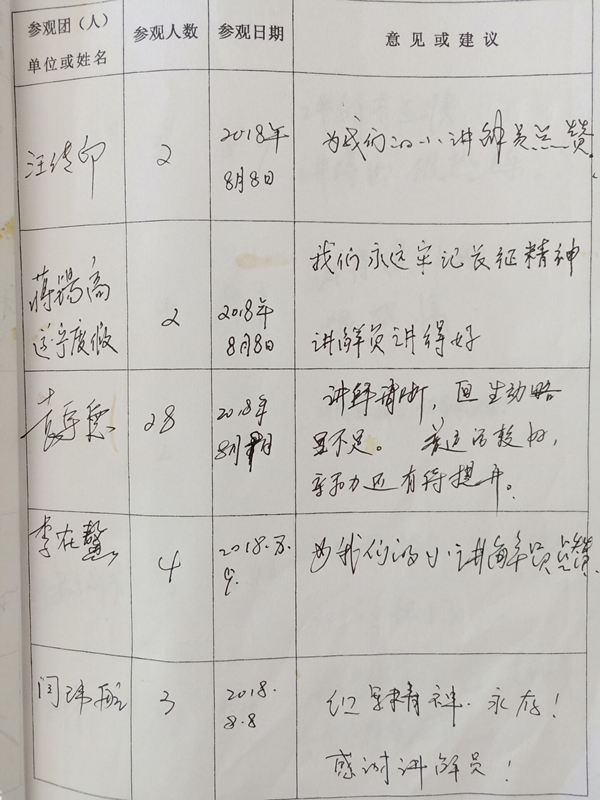 参观团（人）
单位或姓名
参观人数
参观日期
意见或建议
汪传印
2
2018年
8月8日
为我们的小讲解员点赞。
蒋锡高
遂宁度假
2
2018年
8月8日
我们永远牢记长征精神
讲解员讲得好
28
2018年
8月 日
讲解清晰，但生动略
显不足。普通话较好，
亲和力还有待提升。
李在鳌
4
2018.8.
9.
为我们的小讲解员点赞
闫玮
3
2018.
8.8
红军精神·永存！
感谢讲解员！